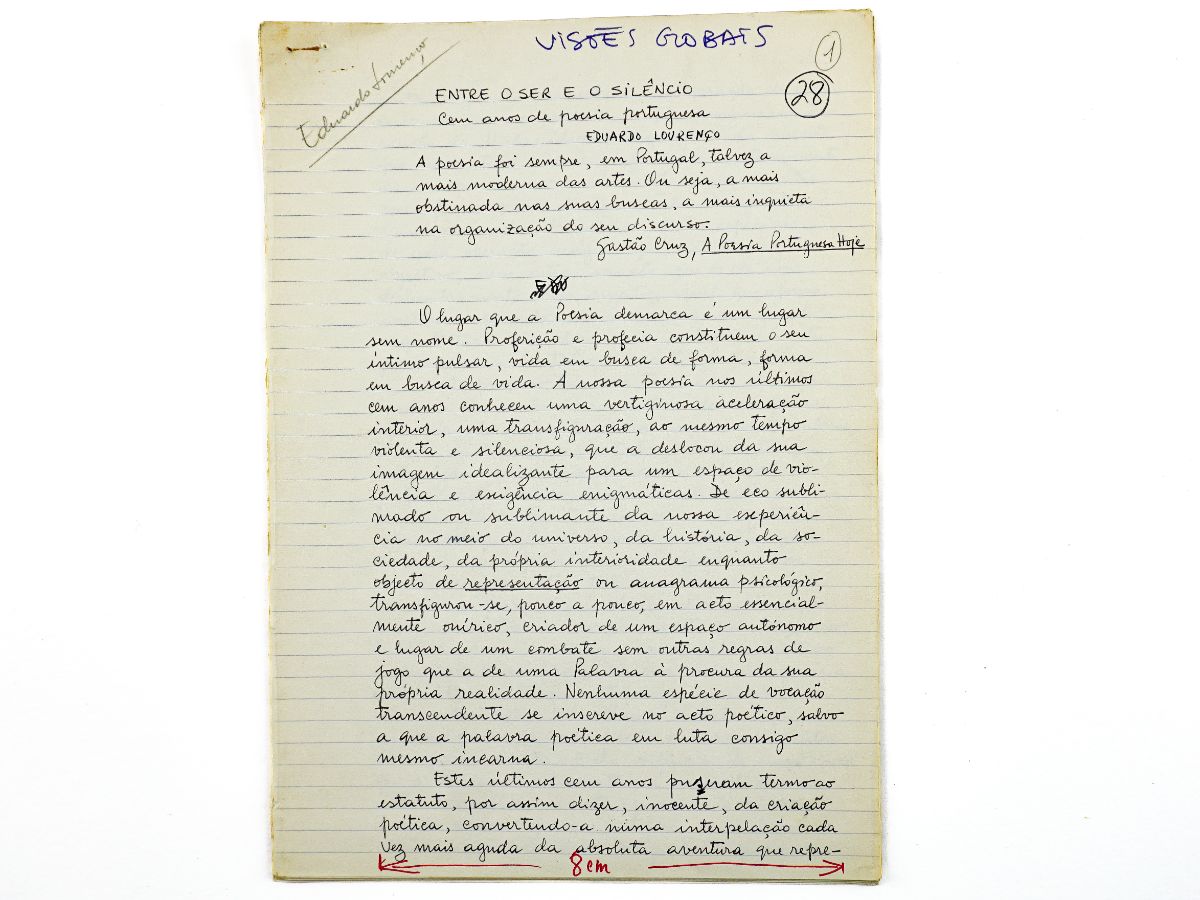 VISÕES GLOBAIS
1
28
Eduardo Lourenço
ENTRE O SER E O SILÊNCIO
Cem anos de poesia portuguesa
EDUARDO LOURENÇO
A poesia foi sempre, em Portugal, talvez a
mais moderna das artes. Ou seja, a mais
obstinada nas suas buscas, a mais inquieta
na organização do seu discurso.
Gastão Cruz, A Poesia Portuguesa Hoje
O lugar que a Poesia demarca é um lugar
sem nome. Proferição e profecia constituem o seu
íntimo pulsar, vida em busca de forma, forma
em busca de vida. A nossa poesia nos últimos
cem anos conheceu uma vertiginosa aceleração
interior, uma transfiguração, ao mesmo tempo
violenta e silenciosa, que a deslocou da sua
imagem idealizante para um espaço de vio-
lência e exigência enigmáticas. De eco subli-
mado ou sublimante da nossa experiên-
cia no meio do universo, da história, da so-
ciedade, da própria interioridade enquanto
objecto de representação ou anagrama psicológico,
transfigurou-se, pouco a pouco, em acto essencial-
mente onírico, criador de um espaço autónomo
e lugar de um combate sem outras regras de
jogo que a de uma Palavra à procura da sua
própria realidade. Nenhuma espécie de vocação
transcendente se inscreve no acto poético, salvo
a que a palavra poética em luta consigo
mesmo incarna.
Estes últimos cem anos puseram termo ao
estatuto, por assim dizer, inocente, da criação
poética, convertendo-a numa interpelação cada
vez mais aguda da absoluta aventura que repre-
8cm